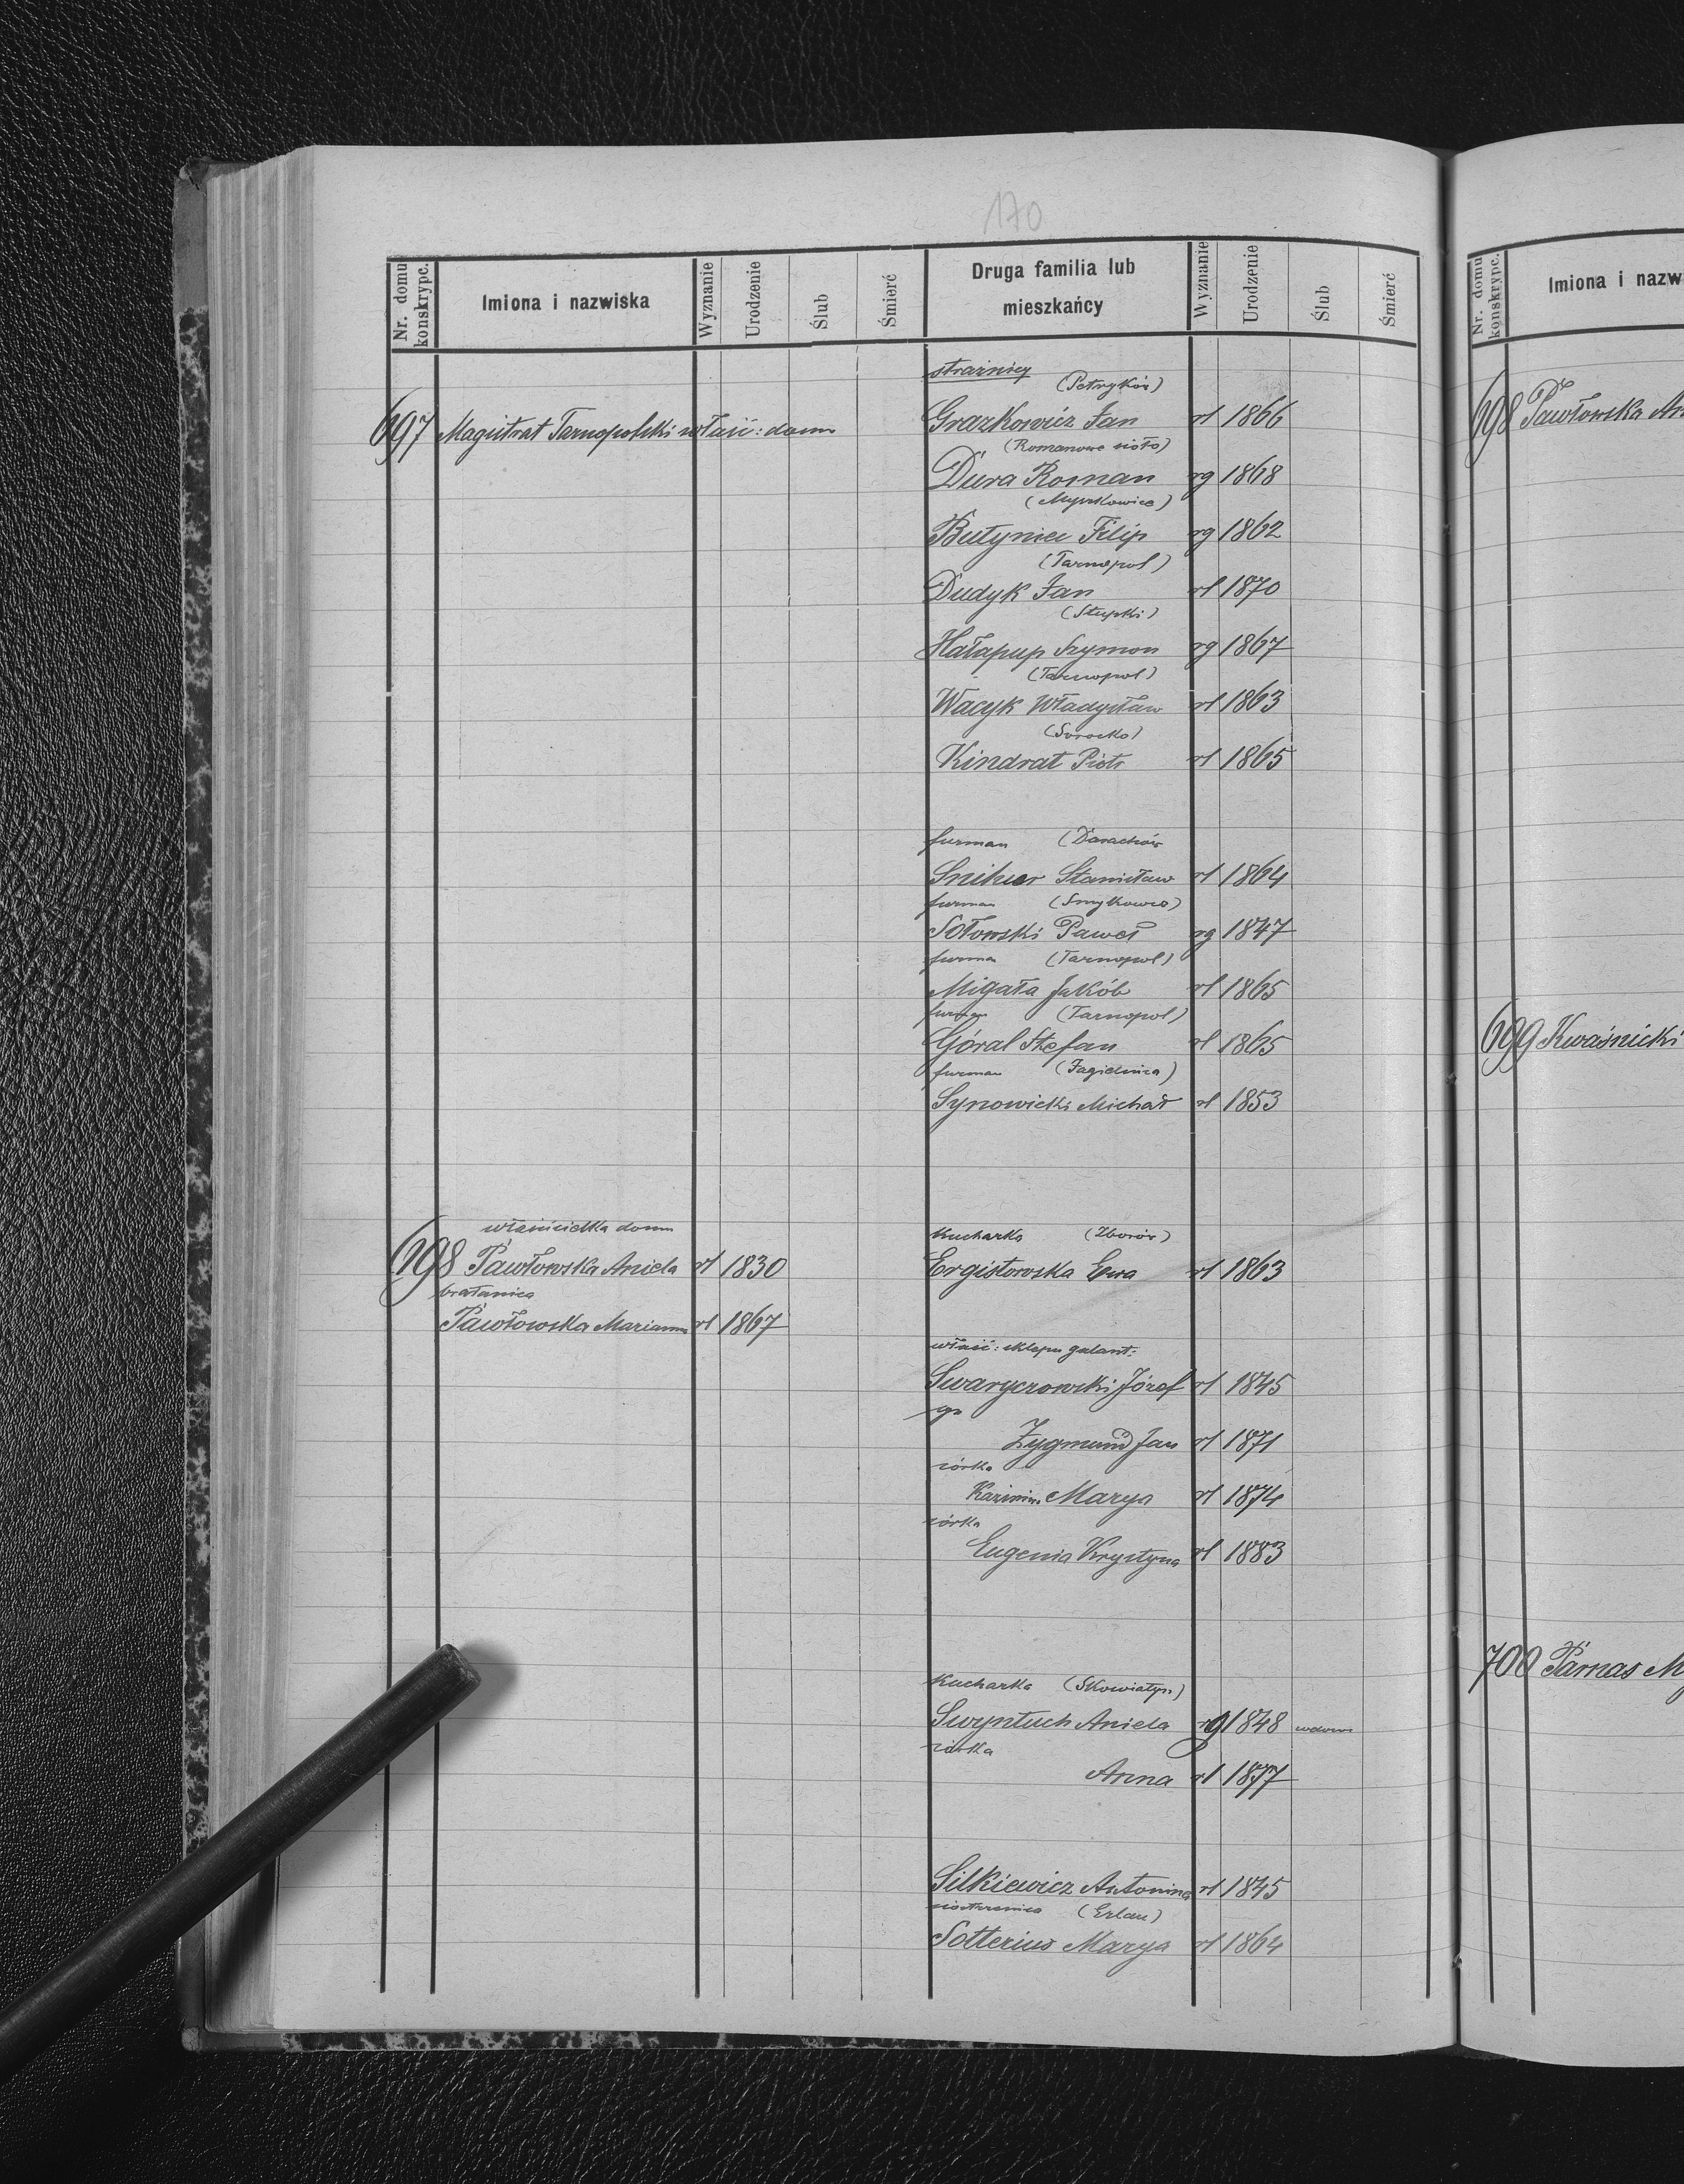 170
Nr. domu konskrypc. Imiona i nazwiska Wyznanie Urodzenie Ślub Śmierć Druga familia lub mieszkańcy Wyznanie Urodzenie Ślub Śmierć
strażnicy (Petryków)
697 Magistrat Tarnopolski właśc: domu Grazkowicz Jan rl 1866
(Romanowe sioło)
Dura Roman rg 1868
(Myszkowice)
Butyniec Filip rg 1862
(Tarnopol)
Dudyk Jan rl 1870
(Stupki)
Hałapup Szymon rg 1867
(Tarnopol)
Wacyk Władysław rl 1863
(Sorocko)
Kindrat Piotr rl 1865
furman (Darachów
Snihur Stanisław rl 1864
furman (Smykowce)
Sołowski Paweł rg 1847
furman (Tarnopol)
Migała Jakób rl 1865
furman (Tarnopol)
Góral Stefan rl 1865
furman (Jagielnica)
Synowicki Michał rl 1853
właścicielka domu kucharka (Zborów)
698 Pawłowska Aniela rl 1830 Ergistowska Ewa rl 1863
bratanica
Pawłowska Marianna rl 1867
właśc: sklepu galant:
Swaryczowski Józef rl 1845
syn
Zygmund Jan rl 1871
córka
Kazimira Marya rl 1874
córka
Eugenia Krystyna rl 1883
Kucharka (Skowiatyn)
Swyntuch Aniela rg 1848 wdowa
córka
Anna rl 1877
Silkiewicz Antonina rl 1845
siostrzenica (Erlau)
Sotterius Marya rl 1864
Nr. domu konskrypc. Imiona i nazw
698 Pawłowska An
699 Kwaśnicki
700 Parnas M